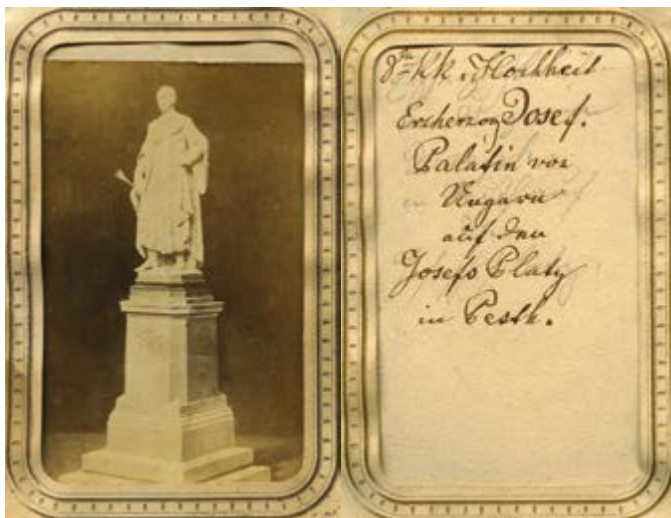 Sr kk. Hochheit
Erzherzog Josef.
Palatin von
Ungarn
auf den
Josefs Platz
in Pesth.